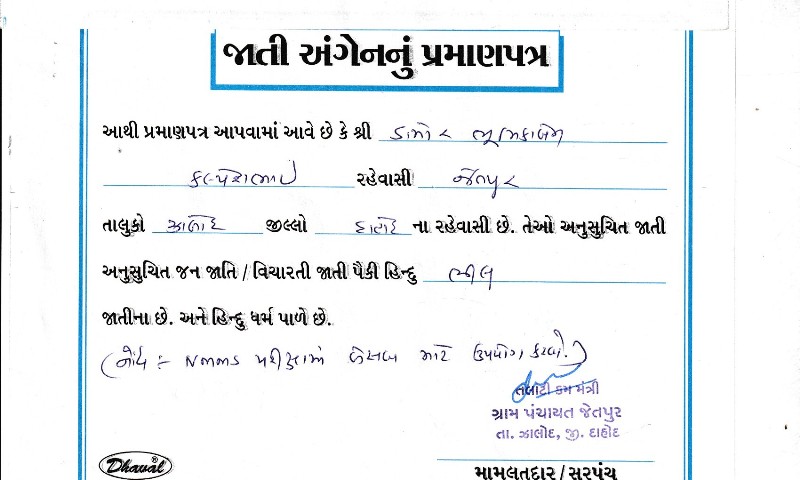 જાતી અંગેનનું પ્રમાણપત્ર
આથી પ્રમાણપત્ર આપવામાં આવે છે કે શ્રી ડામોર ભૂમિકાબેન
કલ્પેશભાઈ રહેવાસી જેતપુર
તાલુકો ઝાલોદ જીલ્લો દાહોદ ના રહેવાસી છે. તેઓ અનુસુચિત જાતી
અનુસુચિત જન જાતિ / વિચારતી જાતી પૈકી હિન્દુ ભીલ
જાતીના છે. અને હિન્દુ ધર્મ પાળે છે.
(નોંધ :- NMMS પરીક્ષામાં બેસવા માટે ઉપયોગ કરવો.)
તલાટી કમ મંત્રી
ગ્રામ પંચાયત જેતપુર
તા. ઝાલોદ, જી. દાહોદ
Dhaval ®
મામલતદાર / સરપંચ